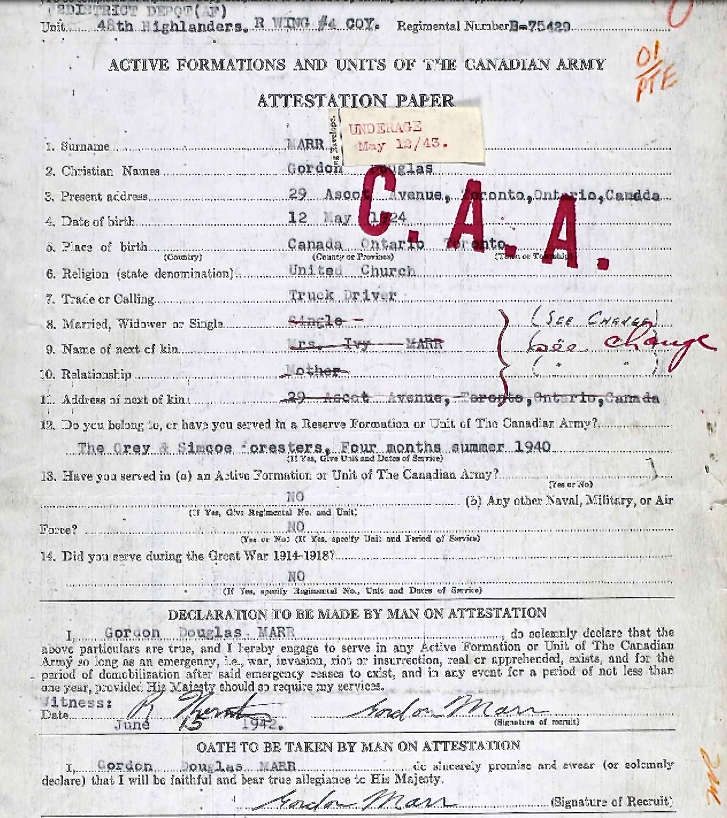 DISTRICT DEPOT(AF)
Unit 48th Highlanders. R WING #4 COY. Regimental Number B-75429
01
PTE
ACTIVE FORMATIONS AND UNITS OF THE CANADIAN ARMY
ATTESTATION PAPER
UNDERAGE
May 12/43.
Envelope.
1. Surname MARR
2. Christian Names Gordon Douglas
3. Present address 29 Ascot Avenue, Toronto,Ontario,Canada
C. A. A.
4. Date of birth 12 May 1924
5. Place of birth Canada Ontario Toronto
(Country) (County or Province) (Town or Township)
6. Religion (state denomination) United Church
7. Trade or Calling Truck Driver
8. Married, Widower or Single Single (SEE CHANGE)
9. Name of next of kin Mrs. Ivy MARR (see change
10. Relationship Mother ( " " )
11. Address of next of kin 29 Ascot Avenue, Toronto,Ontario,Canada
12. Do you belong to, or have you served in a Reserve Formation or Unit of The Canadian Army?
The Grey & Simcoe oresters, Four months summer 1940
(If Yes, Give Unit and Dates of Service)
13. Have you served in (a) an Active Formation or Unit of The Canadian Army?
(Yes or No)
NO (b) Any other Naval, Military, or Air
(If Yes, Give Regimental No. and Unit)
Force? NO
(Yes or No) (If Yes, specify Unit and Period of Service)
14. Did you serve during the Great War 1914-1918?
NO
(If Yes, specify Regimental No., Unit and Dates of Service)
DECLARATION TO BE MADE BY MAN ON ATTESTATION
I, Gordon Douglas MARR, do solemnly declare that the
above particulars are true, and I hereby engage to serve in any Active Formation or Unit of The Canadian
Army so long as an emergency, i.e., war, invasion, riot or insurrection, real or apprehended, exists, and for the
period of demobilization after said emergency ceases to exist, and in any event for a period of not less than
one year, provided His Majesty should so require my services.
Witness: R Gordon Marr
Date June 15 1942. (Signature of recruit)
OATH TO BE TAKEN BY MAN ON ATTESTATION
I, Gordon Douglas MARR do sincerely promise and swear (or solemnly
declare) that I will be faithful and bear true allegiance to His Majesty.
Gordon Marr (Signature of Recruit)